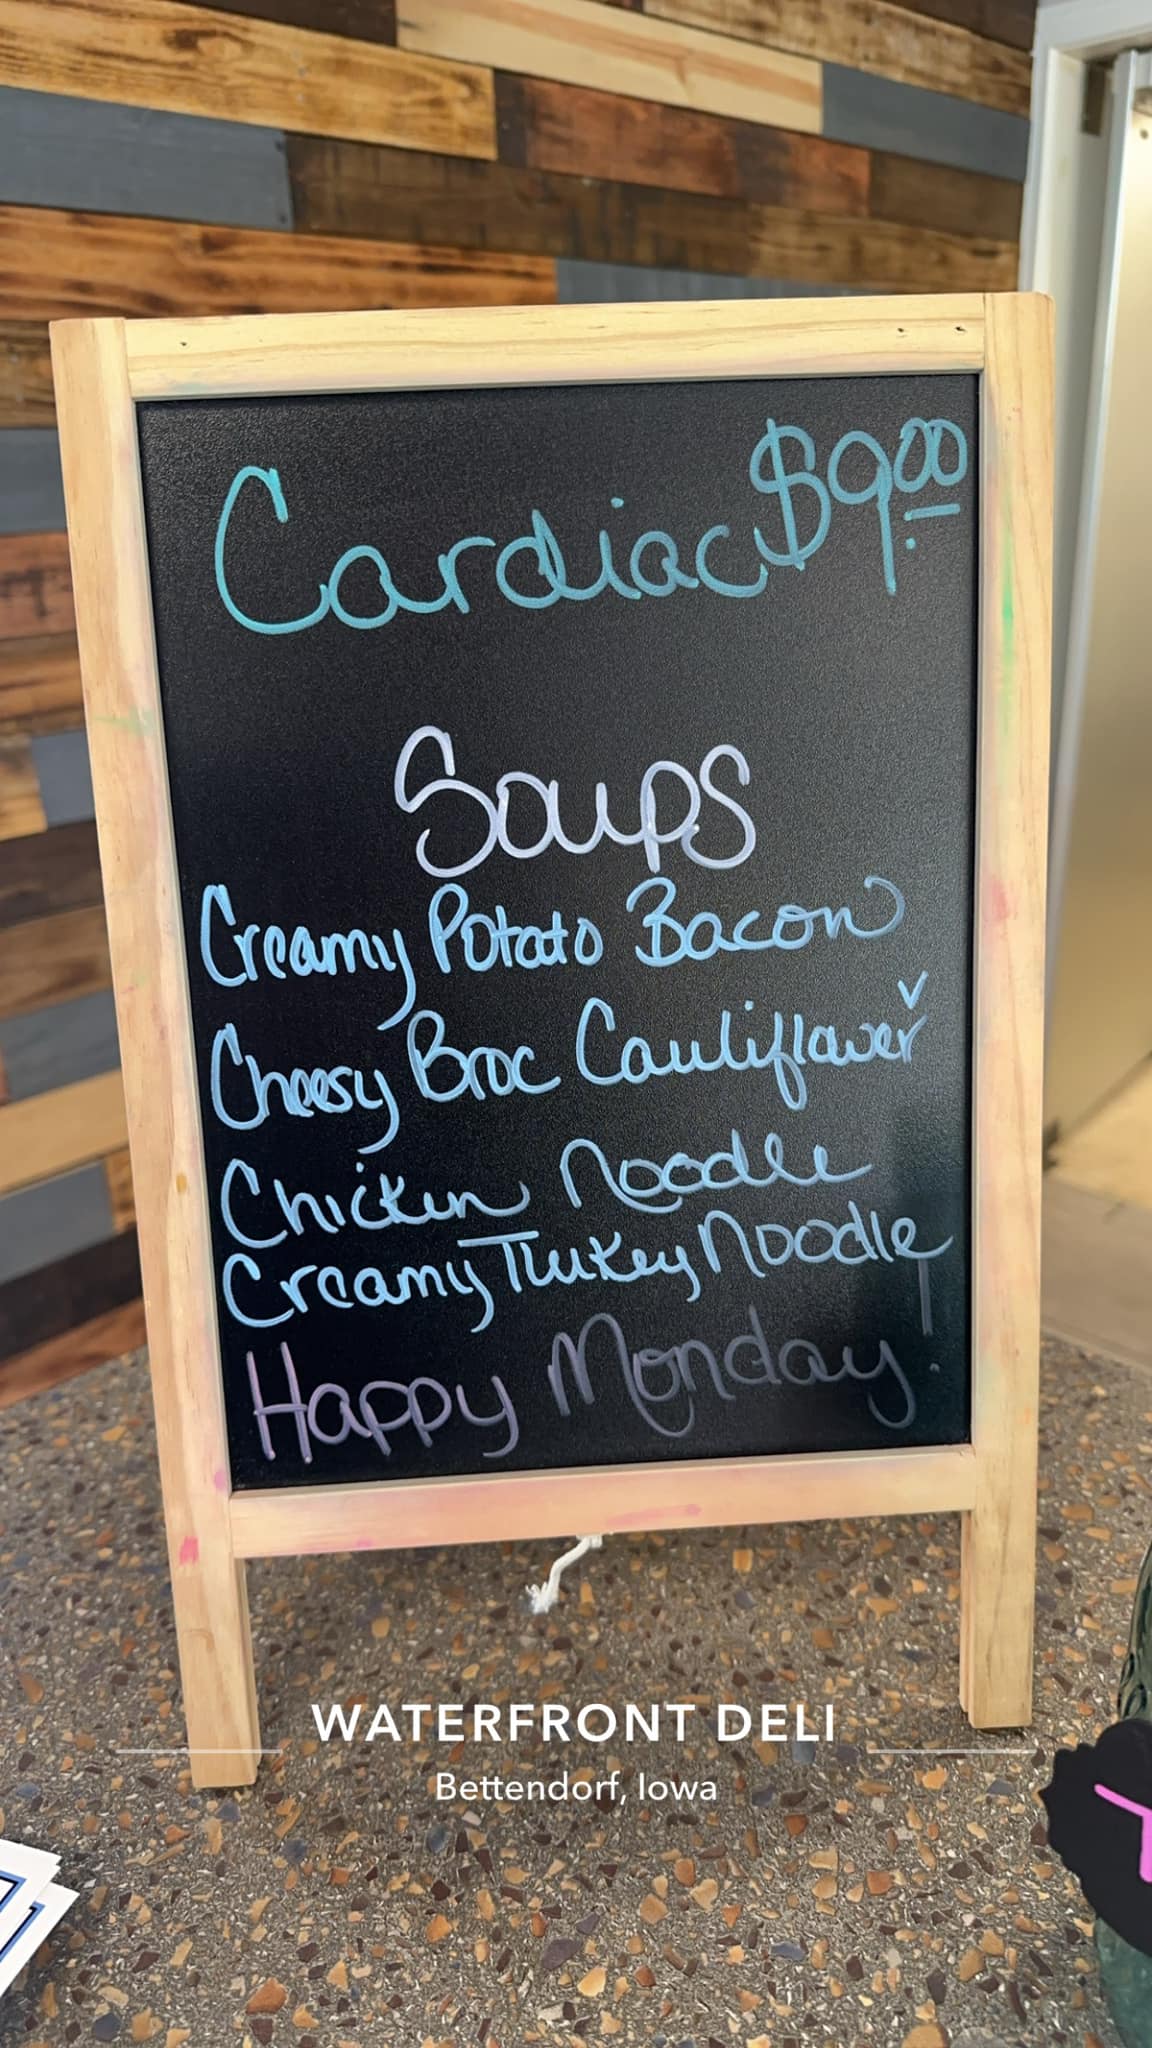 Cardiac $9.00
Soups
Creamy Potato Bacon
Cheesy Broc Cauliflower v
Chicken Noodle
Creamy Turkey Noodle
Happy Monday!
WATERFRONT DELI
Bettendorf, Iowa